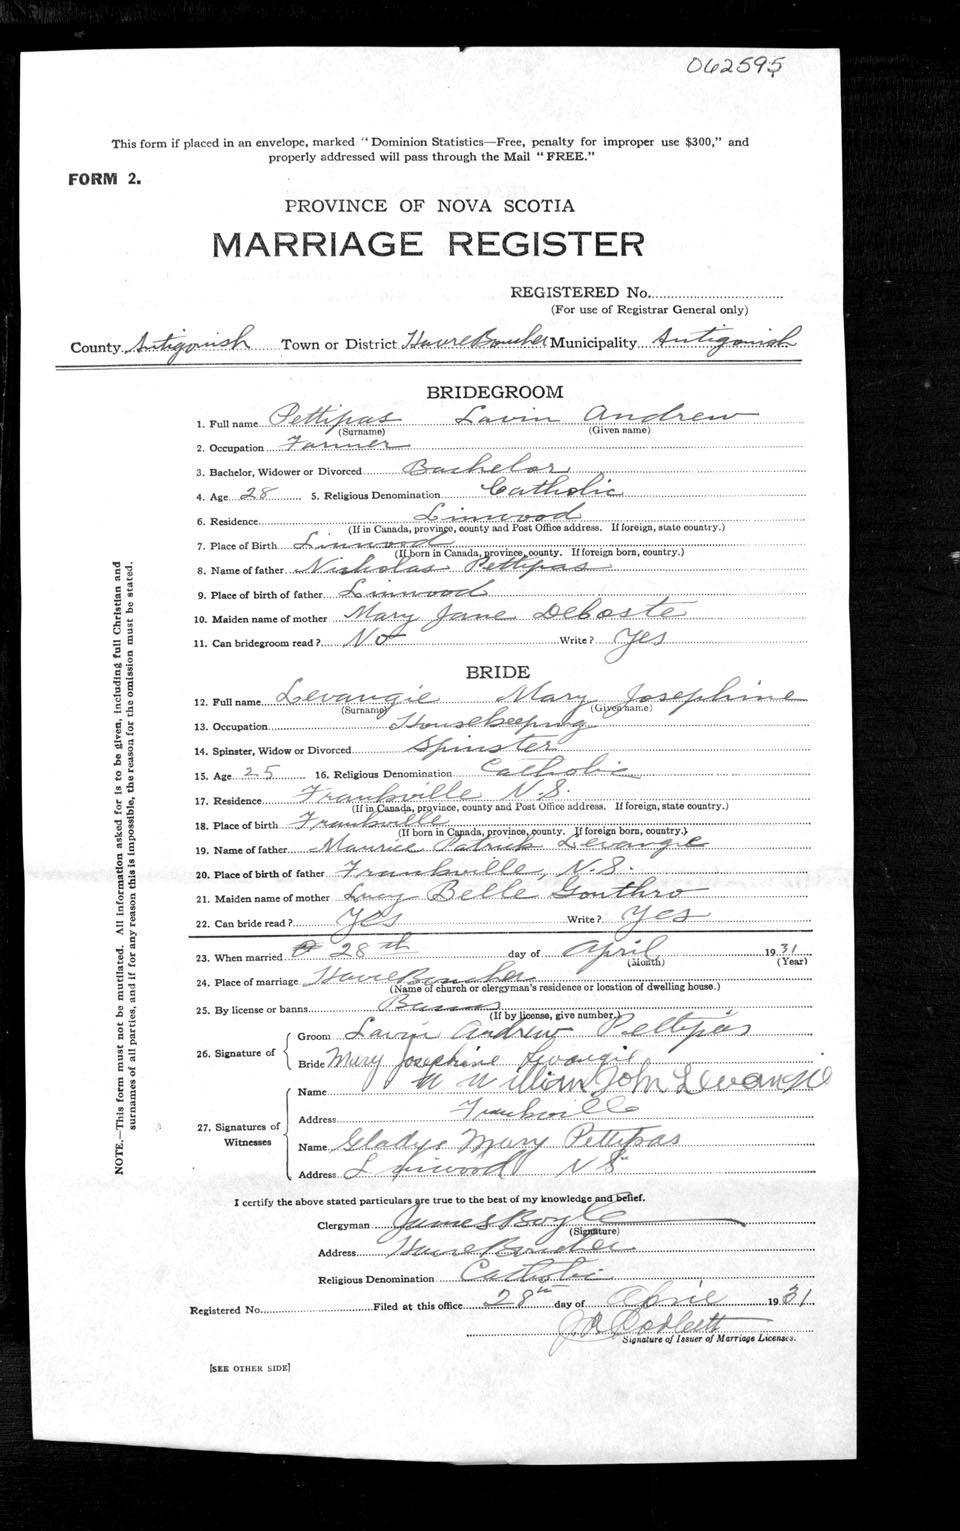 062595
This form if placed in an envelope, marked "Dominion Statistics—Free, penalty for improper use $300," and
properly addressed will pass through the Mail "FREE."
FORM 2.
PROVINCE OF NOVA SCOTIA
MARRIAGE REGISTER
REGISTERED No.
(For use of Registrar General only)
County Antigonish Town or District Havre Boucher Municipality Antigonish
BRIDEGROOM
1. Full name Pettipas Lavin Andrew
(Surname) (Given name)
2. Occupation Farmer
3. Bachelor, Widower or Divorced Bachelor
4. Age 28 5. Religious Denomination Catholic
6. Residence Linwood
(If in Canada, province, county and Post Office address. If foreign, state country.)
7. Place of Birth Linwood
(If born in Canada, province, county. If foreign born, country.)
8. Name of father Nicholas Pettipas
9. Place of birth of father Linwood
10. Maiden name of mother Mary Jane DeCoste
11. Can bridegroom read? No Write? Yes
BRIDE
12. Full name Levangie Mary Josephine
(Surname) (Given name)
13. Occupation Housekeeping
14. Spinster, Widow or Divorced Spinster
15. Age 25 16. Religious Denomination Catholic
17. Residence Franksville N.S.
(If in Canada, province, county and Post Office address. If foreign, state country.)
18. Place of birth Franksville
(If born in Canada, province, county. If foreign born, country.)
19. Name of father Maurice Patrick Levangie
20. Place of birth of father Franksville, N.S.
21. Maiden name of mother Lucy Belle Gonthro
22. Can bride read? Yes Write? Yes
23. When married 28th day of April 1931
(Month) (Year)
24. Place of marriage Havre Boucher
(Name of church or clergyman's residence or location of dwelling house.)
25. By license or banns Banns
(If by license, give number.)
26. Signature of
Groom Lavin Andrew Pettipas
Bride Mary Josephine Levangie
27. Signatures of Witnesses
Name William John Levangie
Address Franksville
Name Gladys Mary Pettipas
Address Linwood N S
I certify the above stated particulars are true to the best of my knowledge and belief.
Clergyman James Boyle
(Signature)
Address Havre Boucher
Religious Denomination Catholic
Registered No. Filed at this office 28th day of April 1931
J
Signature of Issuer of Marriage Licenses.
[SEE OTHER SIDE]
NOTE.—This form must not be mutilated. All information asked for is to be given, including full Christian and
surnames of all parties, and if for any reason this is impossible, the reason for the omission must be stated.